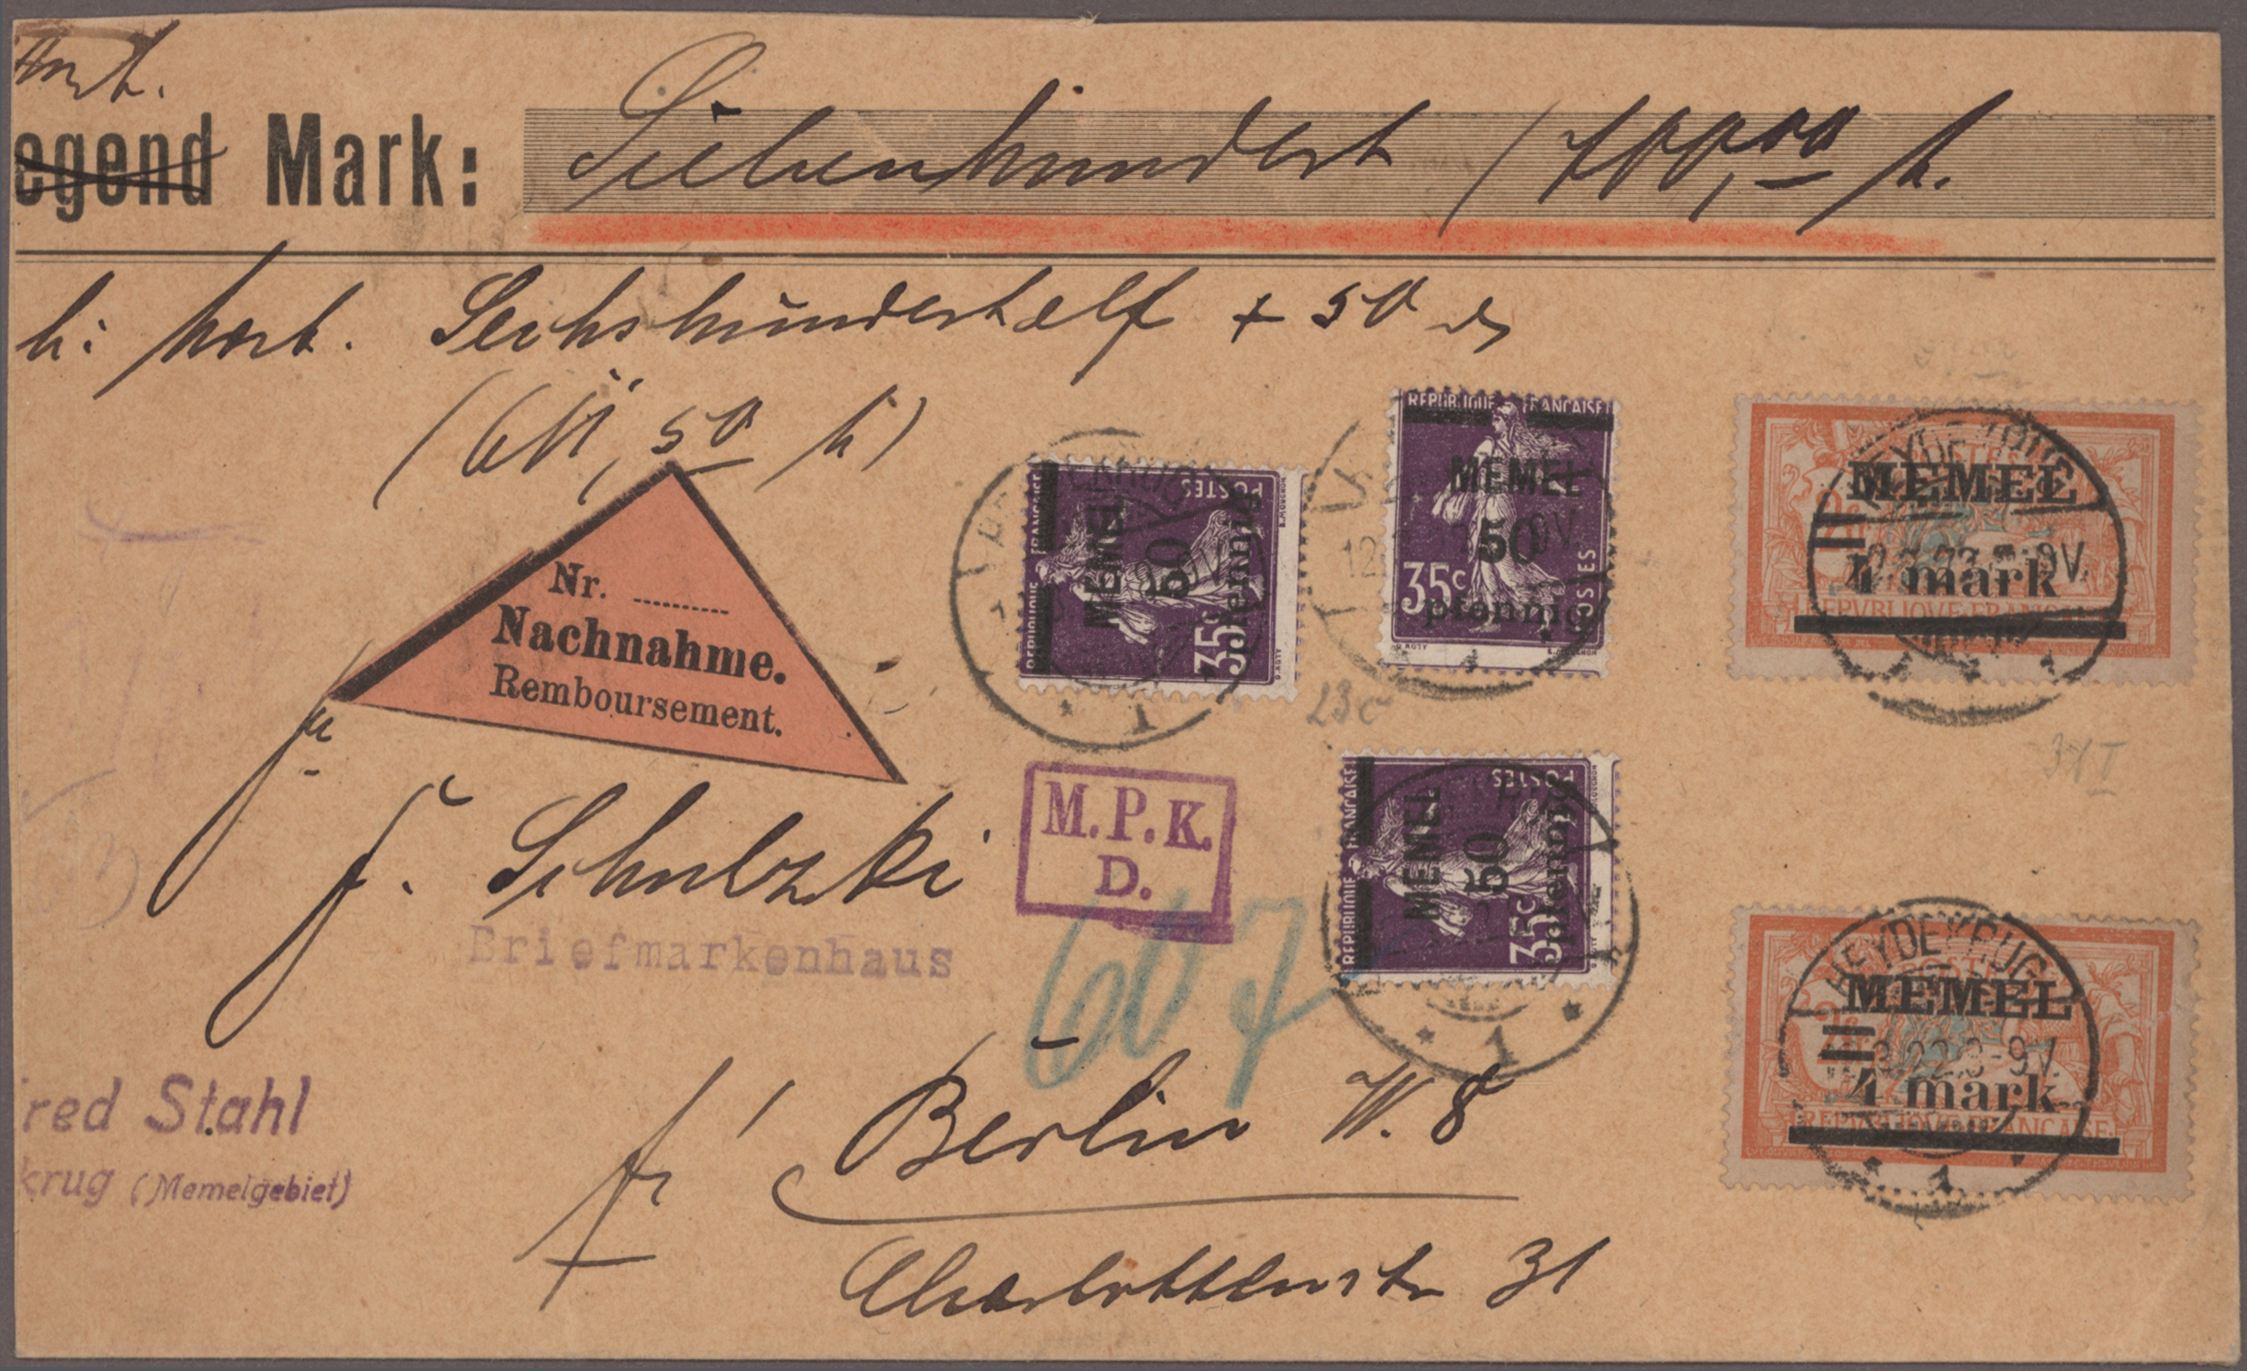 egend Mark: Siebenhundert (700,00 M.
Sechshundertelf + 50
(611,50 M)
Nr.
Nachnahme.
Remboursement.
REPUBLIQUE FRANÇAISE
POSTES
MEMEL
50
pfennig
35c
REPUBLIQUE FRANÇAISE
MEMEL
50
35c
pfennig
POSTES
HEYDEKRUG
MEMEL
4 mark
REPVBLIQVE FRANÇAISE
23c
M.P.K.
D.
REPUBLIQUE FRANÇAISE
POSTES
MEMEL
50
pfennig
35c
1
Briefmarkenhaus
607
HEYDEKRUG
MEMEL
3.22.8-9V.
4 mark
REPVBLIQVE FRANÇAISE
1
Berlin W. 8
red Stahl
krug (Memelgebiet)
Charlottenstr 31